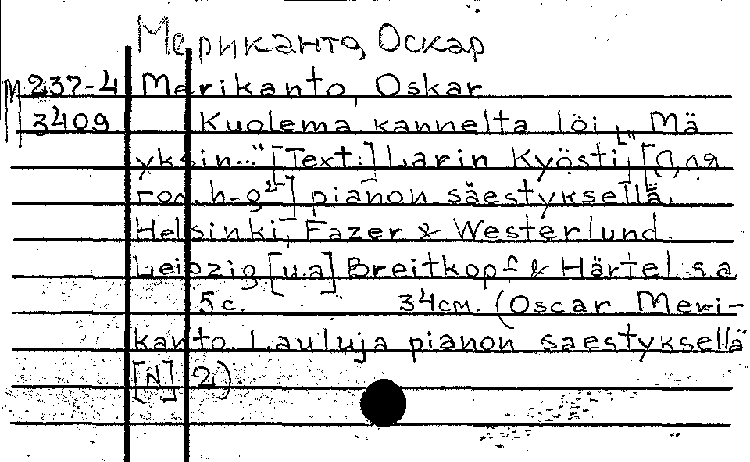 Мериканто, Оскар
М 237-4 Merikanto, Oskar
3409 Kuolema kannelta löi „Mä
yksin..." [Text:] Larin Kyösti, [Для
гол. h-g²] pianon säestyksellä.
Helsinki, Fazer & Westerlund
Leipzig [u.a] Breitkopf & Härtel s.a.
5c. 34см. (Oscar Meri-
kanto Lauluja pianon säestyksellä
[N] 2)